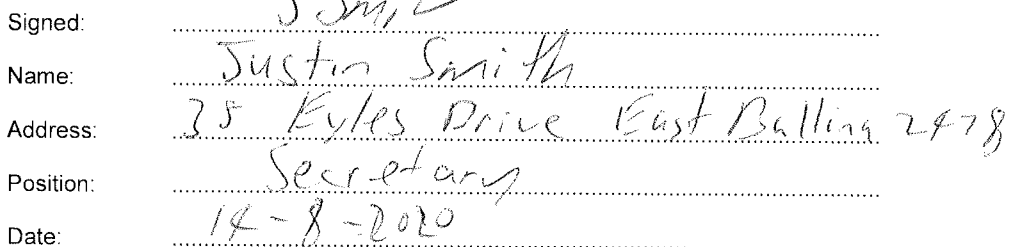 Signed: J Smith
Name: Justin Smith
Address: 38 Eyles Drive East Ballina 2478
Position: Secretary
Date: 14-8-2020